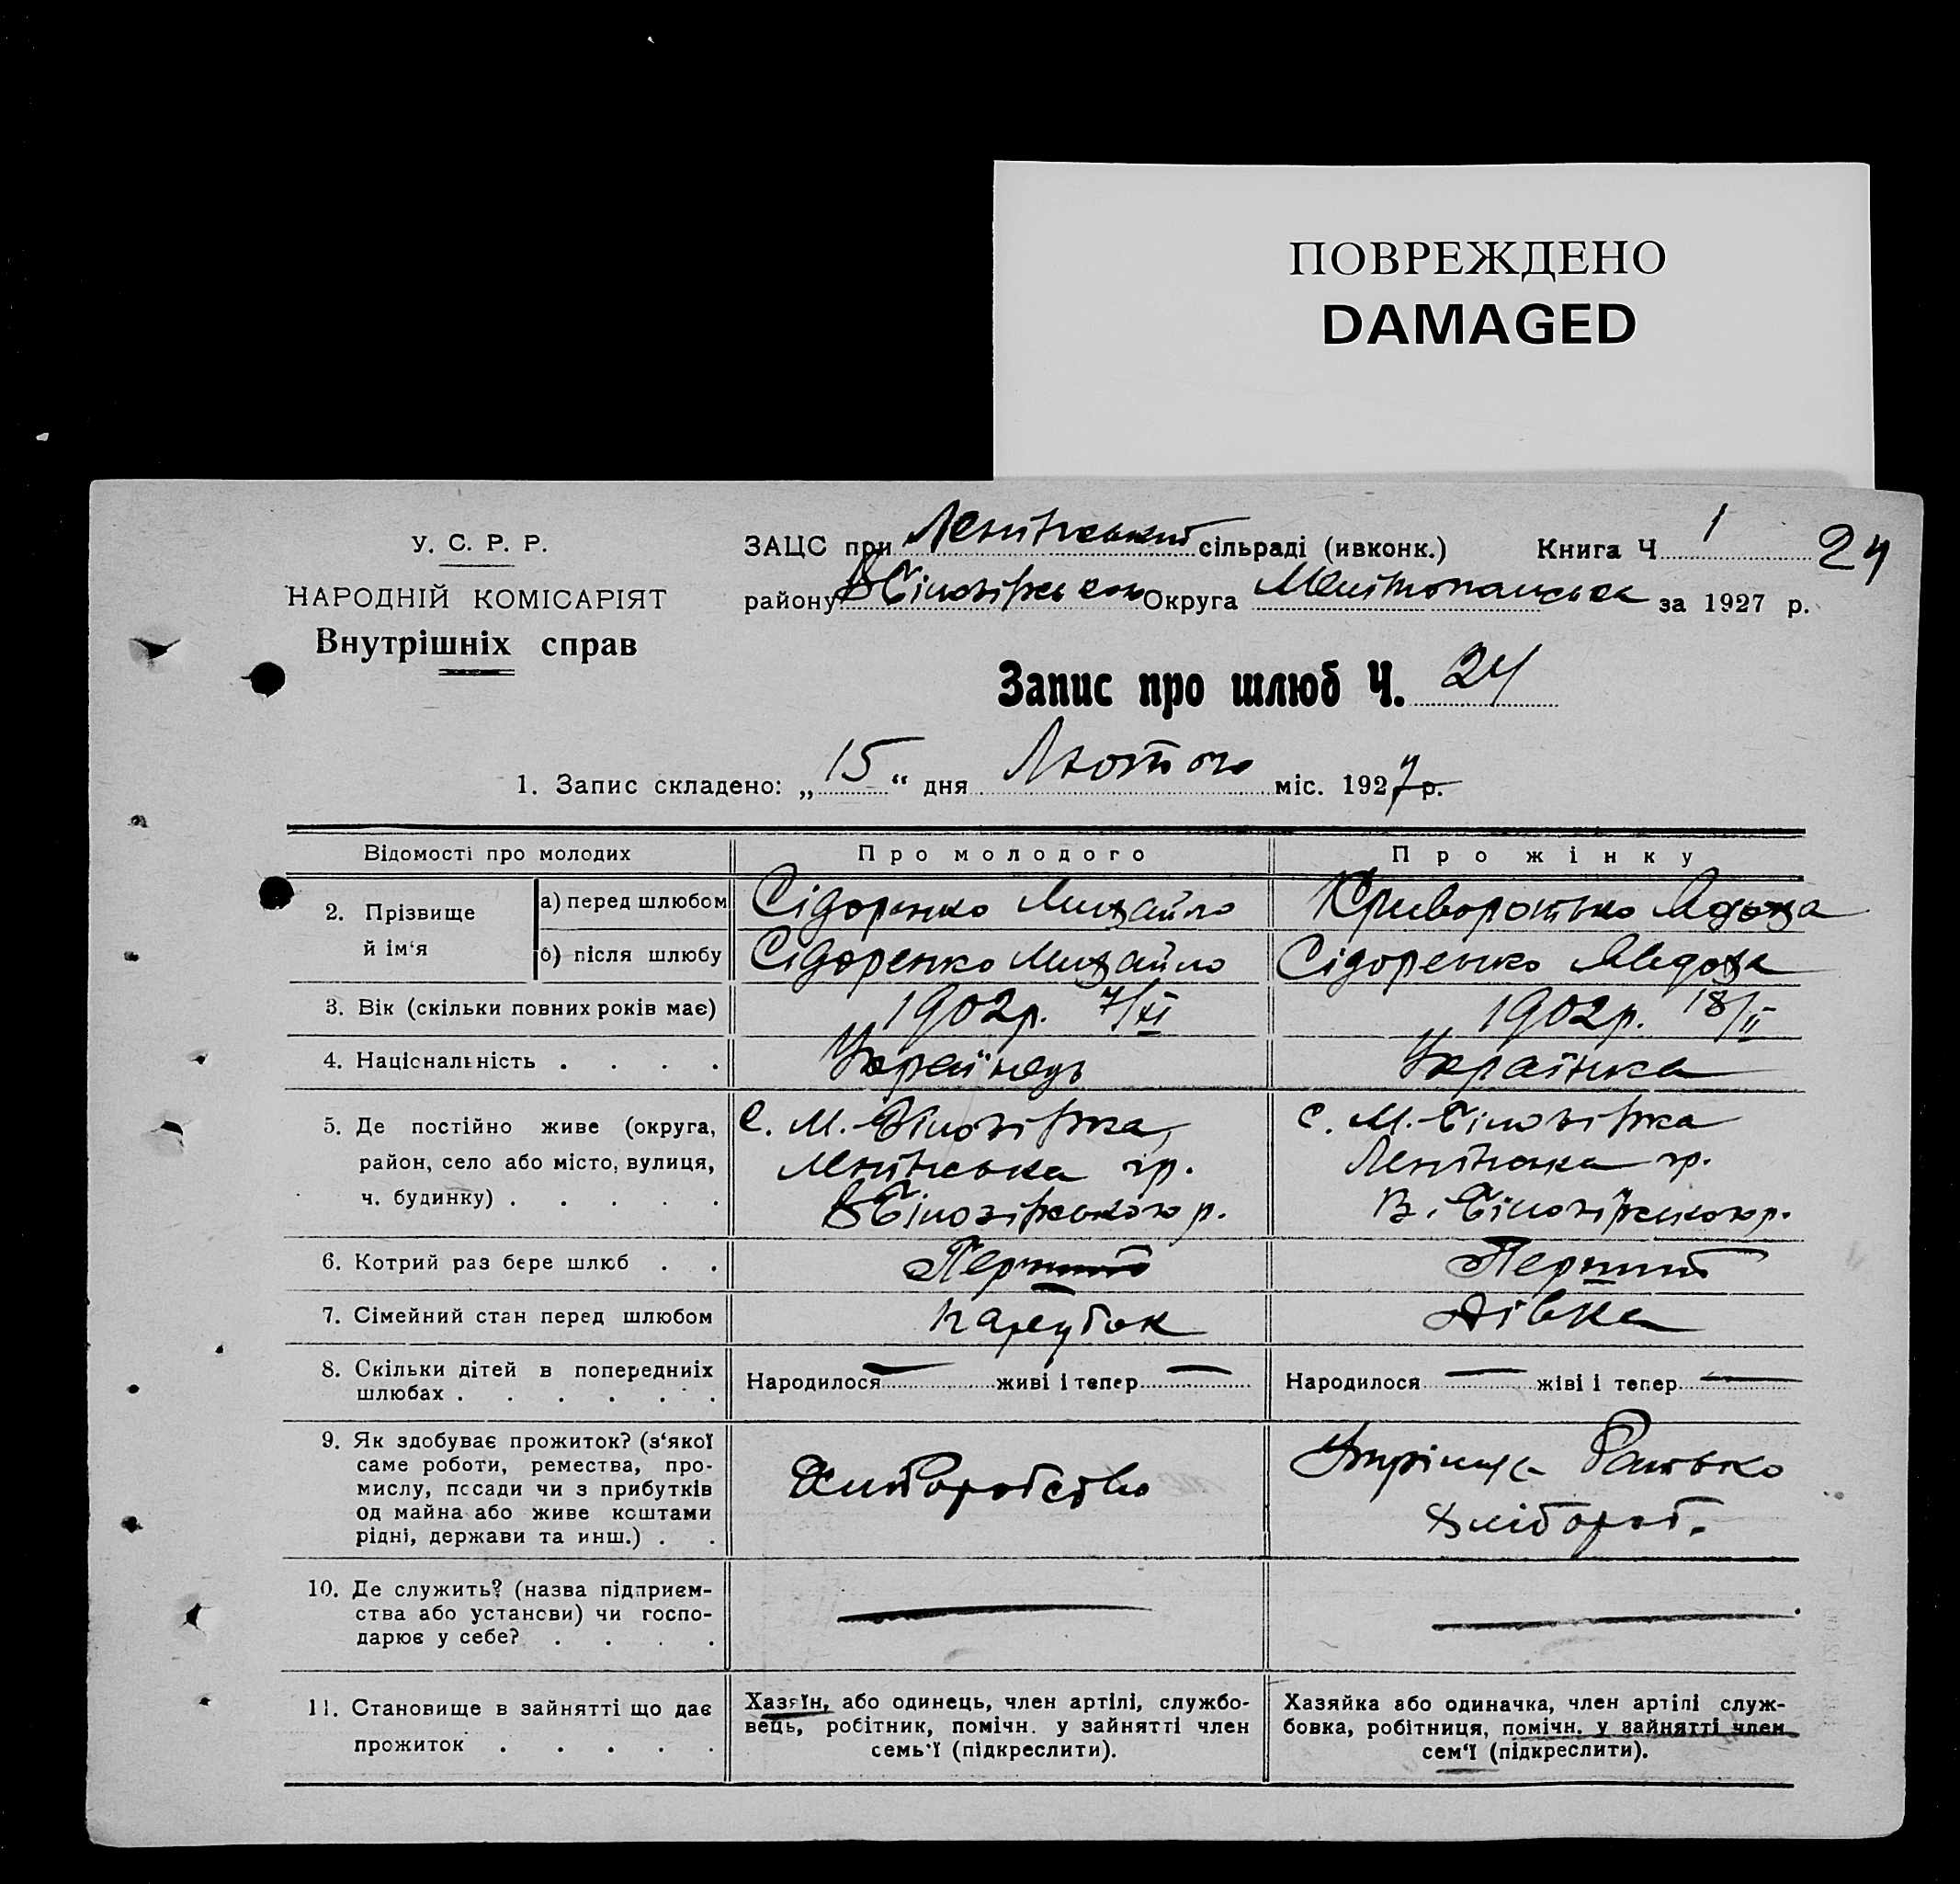 ПОВРЕЖДЕНО
DAMAGED
У. С. Р. Р.
НАРОДНІЙ КОМІСАРІЯТ
Внутрішніх справ
ЗАЦС при Ленінський сільраді (ивконк.) Книга Ч 1 24
району ВБілозірською Округа Мелітопальська за 1927 р.
Запис про шлюб Ч. 24
1. Запис складено: „ 15 “ дня Лютого міс. 1927 р.
Відомості про молодих Про молодого Про жінку
2. Прізвище й ім‘я
а) перед шлюбом Сідоренко Михайло Криворотько
б) після шлюбу Сідоренко Михайло Сідоренко
3. Вік (скільки повних років має) 1902р. 7/XI 1902р. 18/II
4. Національність . . . . Українець Українка
5. Де постійно живе (округа, район, село або місто, вулиця, ч. будинку) . . . . .
С. М. Білозірка,
Ленінська гр.
ВБілозірською р.
С. М. Білозірка
Ленінська гр.
В. Білозірською р.
6. Котрий раз бере шлюб . . Перший Перший
7. Сімейний стан перед шлюбом парубок Дівка
8. Скільки дітей в попередниіх шлюбах . . . . . .
Народилося — живі і тепер —
Народилося — жіві і тепер —
9. Як здобуває прожиток? (з‘якої саме роботи, ремества, промислу, посади чи з прибутків од майна або живе коштами рідні, держави та инш.) . .
Хліборобство
Батько
хлібороб.
10. Де служить? (назва підприємства або установи) чи господарює у себе? . . . .
— —
11. Становище в зайнятті що дає прожиток . . . . .
Хазяїн, або одинець, член артілі, службовець, робітник, помічн. у зайнятті член семь‘ї (підкреслити).
Хазяйка або одиначка, член артілі службовка, робітниця, помічн. у зайнятті член сем‘ї (підкреслити).